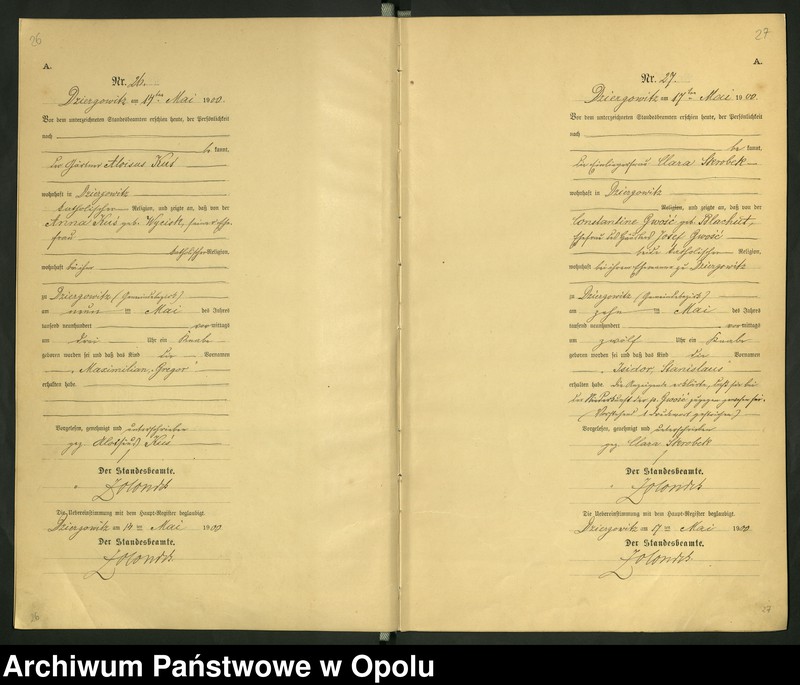 26
A.
Nr. 26.
Dziergowitz am 14ten Mai 1900.
Vor dem unterzeichneten Standesbeamten erschien heute, der Persönlichkeit
nach
be kannt,
der Gärtner Aloisus Kuś
wohnhaft in Dziergowitz
katholischer Religion, und zeigte an, daß von der
Anna Kuś geb. Wyciok, seiner Ehe-
frau
katholischer Religion,
wohnhaft bei ihm
zu Dziergowitz (Gemeindebezirk)
am neun ten Mai des Jahres
tausend neunhundert vormittags
um drei Uhr ein Knabe
geboren worden sei und daß das Kind die Vornamen
"Maximilian, Gregor"
erhalten habe.
Vorgelesen, genehmigt und unterschrieben
gez. Kuś
Der Standesbeamte.
Die Uebereinstimmung mit dem Haupt-Register beglaubigt.
Dziergowitz am 14ten Mai 1900.
Der Standesbeamte.
26
27
A.
Nr. 27.
Dziergowitz am 17ten Mai 1900.
Vor dem unterzeichneten Standesbeamten erschien heute, der Persönlichkeit
nach
be kannt,
die Clara Skrobek
wohnhaft in Dziergowitz
Religion, und zeigte an, daß von der
Constantine Gwość geb. Blachutt,
Ehefrau des Josef Gwość
beide katholischer Religion,
wohnhaft bei ihrem Ehemann zu Dziergowitz
zu Dziergowitz (Gemeindebezirk)
am zehn ten Mai des Jahres
tausend neunhundert vormittags
um zwölf Uhr ein Knabe
geboren worden sei und daß das Kind die Vornamen
"Isidor, Stanislaus"
erhalten habe. Die Anzeigende erklärte, daß sie bei
der Niederkunft der p. Gwość zugegen gewesen sei.
(Vorstehend 1 Druckwort gestrichen)
Vorgelesen, genehmigt und unterschrieben
gez. Clara Skrobek
Der Standesbeamte.
Die Uebereinstimmung mit dem Haupt-Register beglaubigt.
Dziergowitz am 17ten Mai 1900.
Der Standesbeamte.
27
Archiwum Państwowe w Opolu